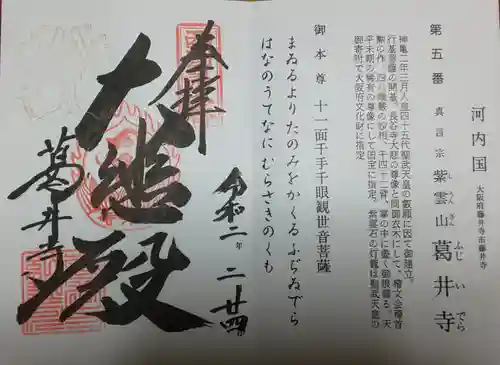 河内国 大阪府藤井寺市藤井寺
第五番 真言宗 紫雲山 葛井寺
し うん ざん ふじ い でら
神亀二年三月人皇四十五代聖武天皇の叡願に依て御建立。
行基菩薩の開基、長谷寺大悲の尊像と同御衣木にして、稽文会稽首
勲の作。四八端厳の妙相、千四十二臂、掌の中に盡く御眼
平末期の稀有の尊像にして国宝に指定。紫雲石の灯籠は聖武天皇の
御寄附で大阪府文化財に指定
御本尊 十一面千手千眼観世音菩薩
まゐるよりたのみをかくるふぢゐでら
はなのうてなに むらさきのくも
奉拝
令和二年 二 廿四
大悲殿
葛井寺